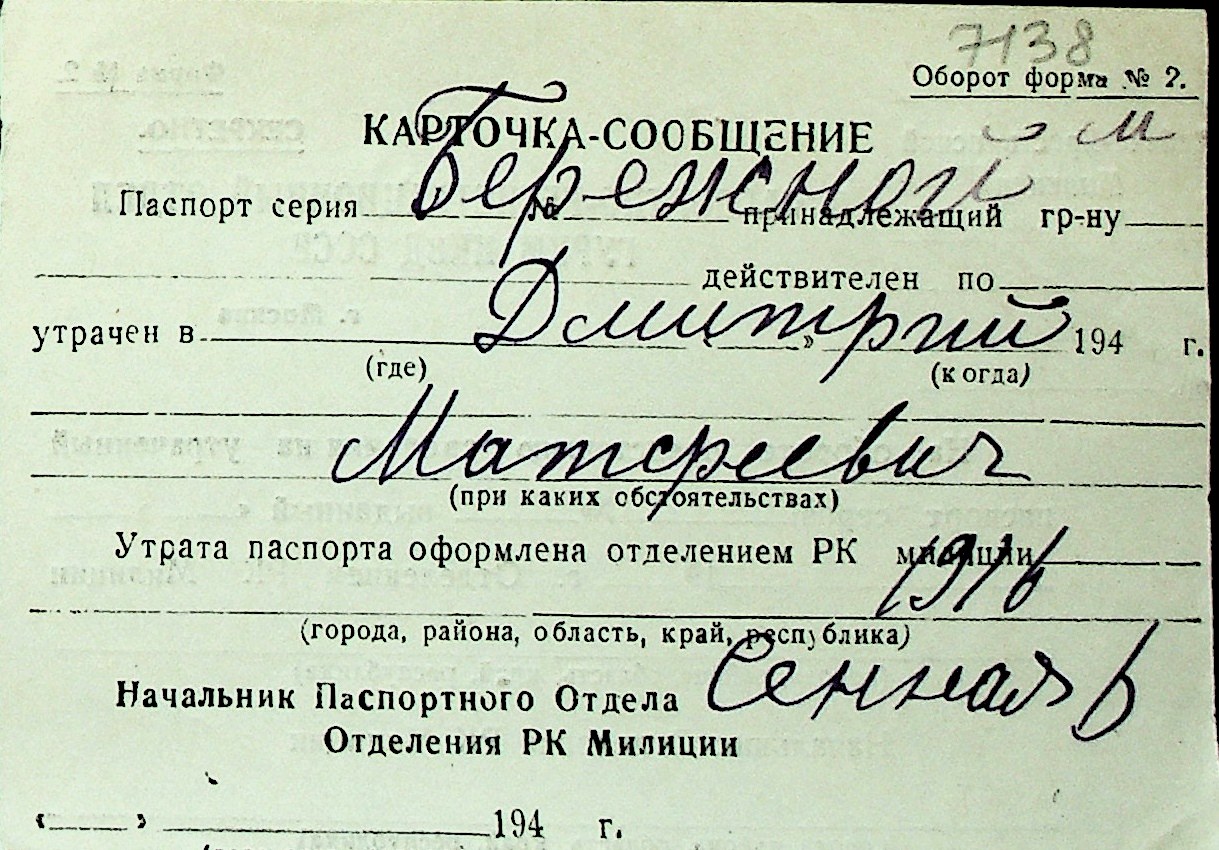 7138
Оборот форма № 2.
м
КАРТОЧКА-СООБЩЕНИЕ
Бережной
Паспорт серия № принадлежащий гр-ну
действителен по
Дмитрий
утрачен в « » 194 г.
(где) (когда)
Матфеевич
(при каких обстоятельствах)
Утрата паспорта оформлена отделением РК милиции
1916
(города, района, область, край, республика)
Начальник Паспортного Отдела
Сенная 6
Отделения РК Милиции
« » 194 г.